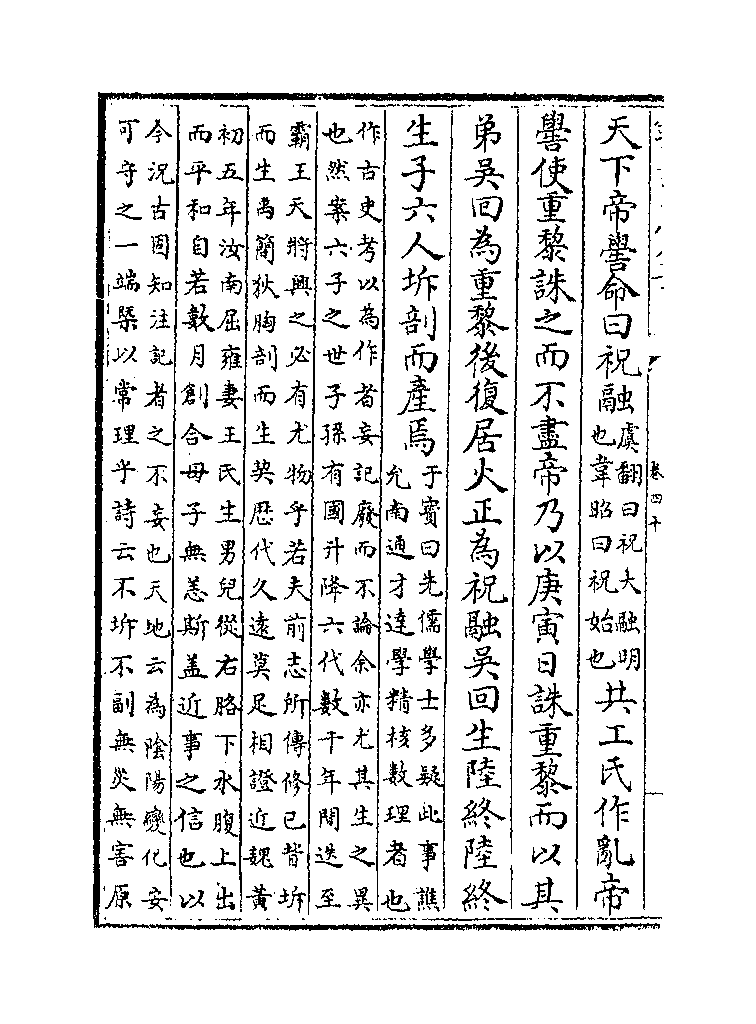 卷四十
天下帝嚳命曰祝融虞翻曰祝大融明也韋昭曰祝始也共工氏作亂帝
嚳使重黎誅之而不盡帝乃以庚寅日誅重黎而以其
弟吳回為重黎後復居火正為祝融吳回生陸終陸終
生子六人坼剖而產焉于寶曰先儒學士多疑此事譙允南通才達學精核數理者也
作古史考以為作者妄記廢而不論余亦尤其生之異
也然案六子之世子孫有國升降六代數千年間迭至
霸王天將興之必有尤物乎若夫前志所傳修已背坼
而生禹簡狄胸剖而生契歴代久遠莫足相證近魏黃
初五年汝南屈雍妻王氏生男兒從右胳下水腹上出
而平和自若數月創合母子無恙斯蓋近事之信也以
今況古固知注記者之不妄也天地云為陰陽變化安
可守之一端槩以常理乎詩云不坼不副無災無害原